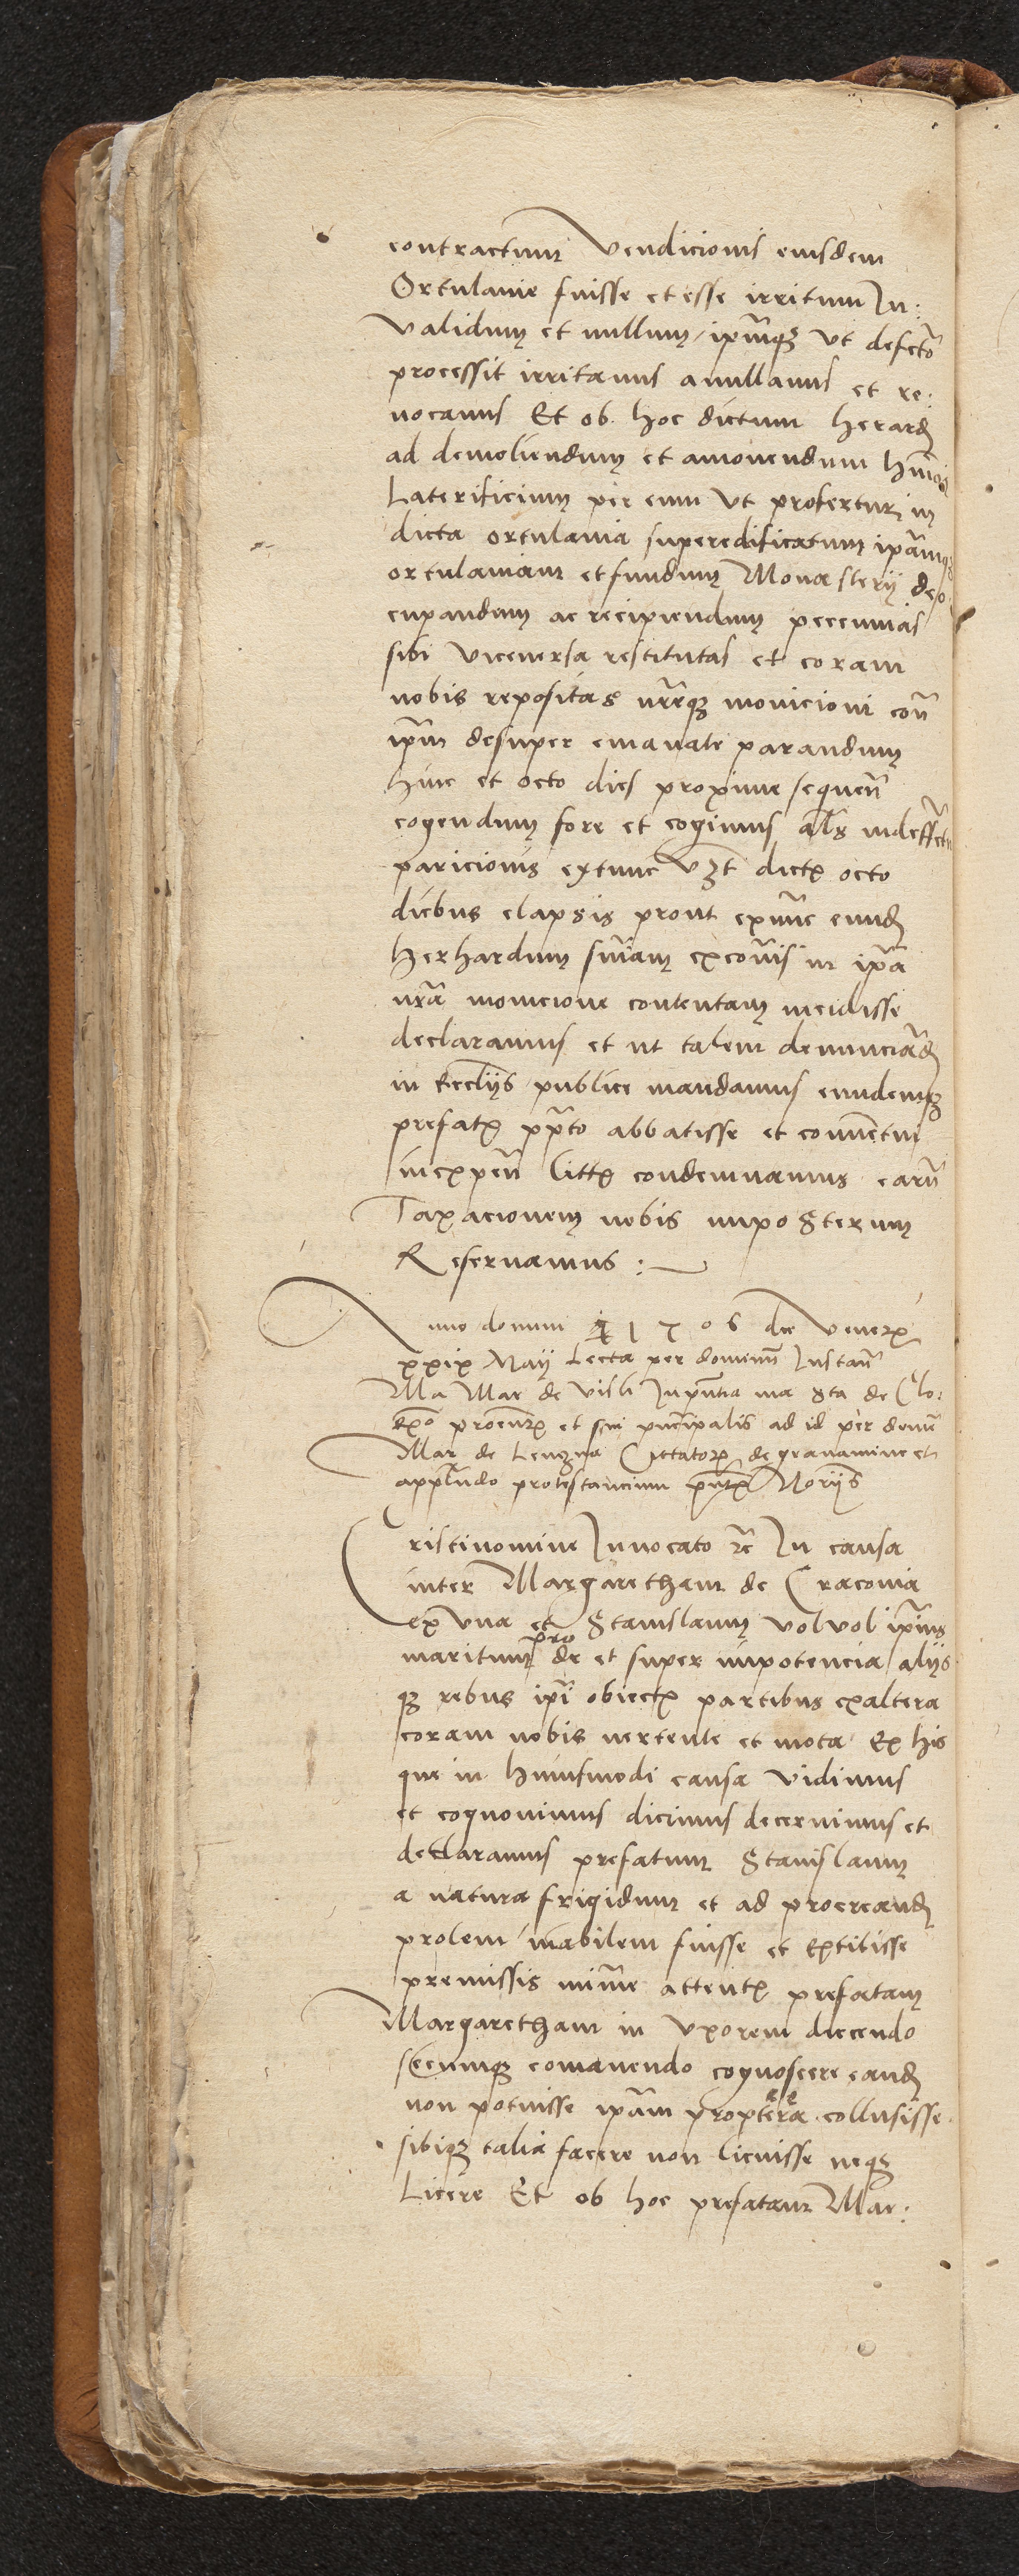 contractum Vendicionis eiusdem
Ortulanie fuisse et esse irritum In:
validum et nullum ipm̄qȝ vt defectō
processit irritamus anullamus et re:
uocamus Et ob hoc dictum Herard
ad demoliendum et amouendum
Laterificium per eum vt profertur in
dicta ortulania superedificatum ipām
ortulaniam et fundum Monasterij de
cupandum ac recipiendum peccunias
sibi viceuersa restitutas et coram
nobis repositas nr̄eqȝ monicioni con̄
ipm̄ desuper emanate parandum
hinc et octo dies proxime sequen̄
cogendum fore et cogimus al̄s
paricionis extunc vȝt dictis octo
diebus elapsis prout exnunc eund
Herhardum sn̄iam excōis in ipā
nrā monicione contentam incidisse
declaramus et vt talem denunciād
in Eccl̄ijs publice mandamus eundemqȝ
prefatis abbatisse et conuentui
in expen̄ littis condemnamus earū
Taxacionem nobis inposterum
Reseruamus :
Anno domini 1506 die veneris
xxix Maij Lecta per dominū Instan̄
Ma Mar de visli In pn̄tia ma Sta de Clo:
procuris et sui principalis ad id per domī
Mar de Cittatoris de grauamine et
appellando protestancium pn̄tis Norijs
Cristi nomine Inuocato rc̄ In causa
inter Margaretham de Cracouia
ex vna et Stanislaum volvol ipīus
maritum pro de et super inpotencia alijs
qȝ rebus ipī obiectis partibus ex altera
coram nobis vertente et mota Ex his
que in huiusmodi causa vidimus
et cognouimus dicimus decernimus et
declaramus prefatum Stanislaum
a natura frigidum et ad procreand
prolem inabilem fuisse et extitisse
premissis minime attentis prefatam
Margaretham in vxorem ducendo
secumqȝ comanendo cognoscere eand
non potuisse ipām propterea collusisse
sibiqȝ talia facere non licuisse neqȝ
Licere Et ob hoc prefatam Mar: